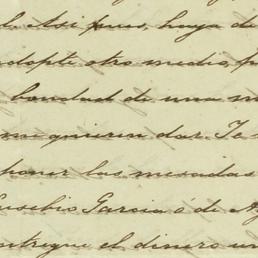 l. Así pues, haya de
adopte otro medio, p
bondad de una m
me quieren dar. Te s
poner las mesadas
Eusebio Garcia o de Ag
ntregue el dinero un